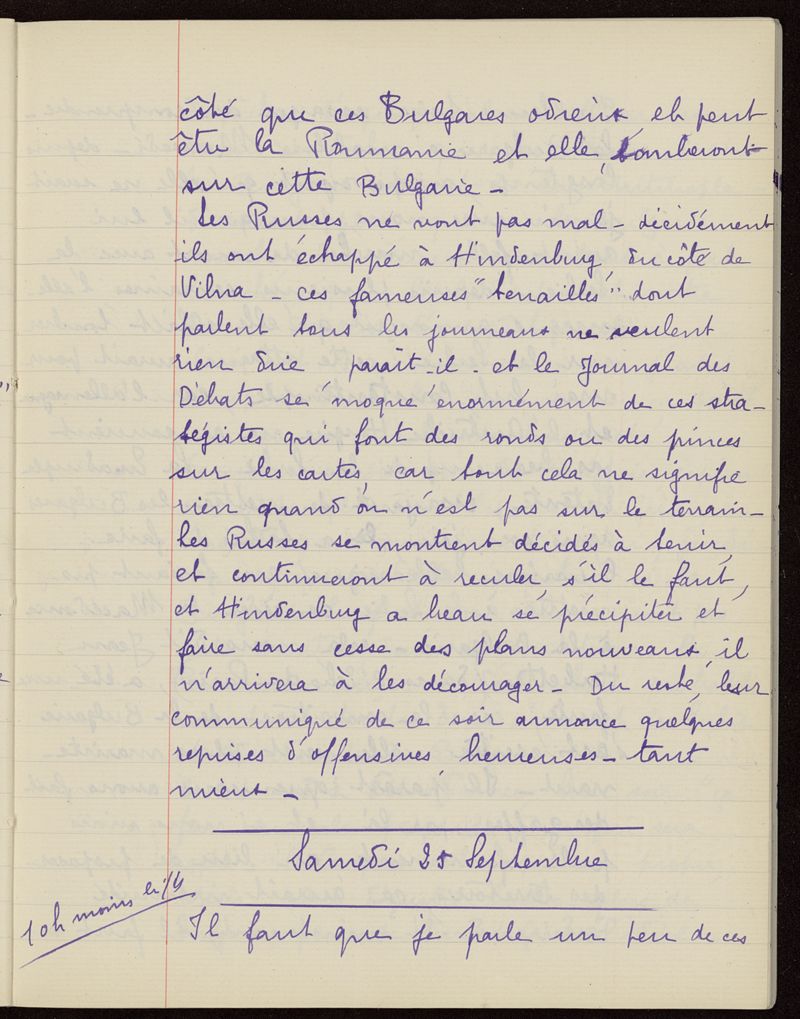 côté que ces Bulgares odieux et peut
être la Roumanie et elle, tomberont
sur cette Bulgarie -
Les Russes ne vont pas mal - décidément
ils ont échappé à Hindenburg du côté de
Vilna - ces fameuses "tenailles" dont
parlent tous les journeaux ne veulent
rien dire paraît-il - et le Journal des
Débats se moque énormément de ces stra-
tégistes qui font des ronds ou des pinces
sur les cartes, car tout cela ne signifie
rien quand on n'est pas sur le terrain -
Les Russes se montrent décidés à tenir,
et continueront à reculer, s'il le faut,
et Hindenburg a beau se précipiter et
faire sans cesse des plans nouveaux, il
n'arrivera à les décourager - Du reste, leur
communiqué de ce soir annonce quelques
reprises d'offensives, heureuses - tant
mieux -
Samedi 25 Septembre
10h moins le 1/4
Il faut que je parle un peu de ces